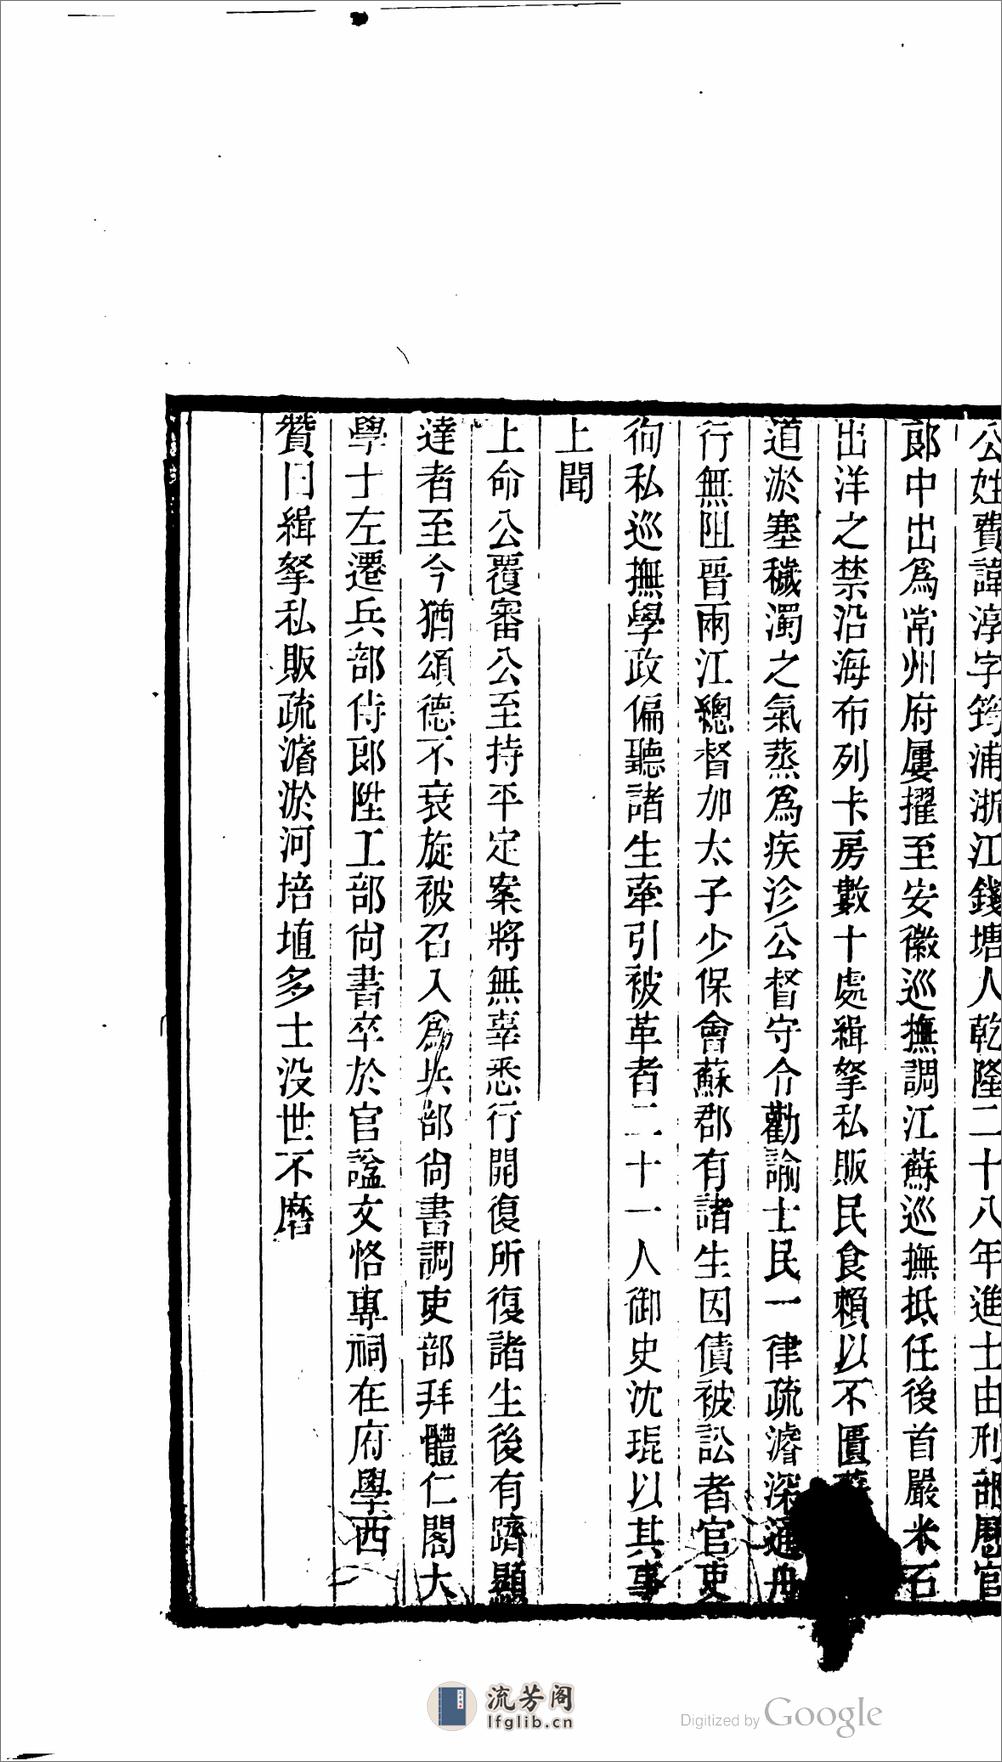 公姓費諱淳字筠浦浙江錢塘人乾隆二十八年進士由刑部歷官
郞中出爲常州府屢擢至安徽巡撫調江蘇巡撫抵任後首嚴米石
出洋之禁沿海布列卡房數十處緝拏私販民食賴以不匱蘇
道淤塞穢濁之氣蒸爲疾沴公督守令勸諭士民一律疏濬深通舟
行無阻晉兩江總督加太子少保會蘇郡有諸生因債被訟者官吏
徇私巡撫學政偏聽諸生牽引被革者二十一人御史沈琨以其事
上聞
上命公覆審公至持平定案將無辜悉行開復所復諸生後有躋顯
達者至今猶頌德不衰旋被召入爲兵部尙書調吏部拜體仁閣大
學士左遷兵部侍郞陞工部尙書卒於官諡文恪專祠在府學西
贊曰緝拏私販疏濬淤河培埴多士没世不磨
流芳阁
lfglib.cn
Digitized by Google